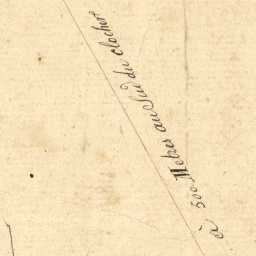 à 500 Metres au Sud du clocher